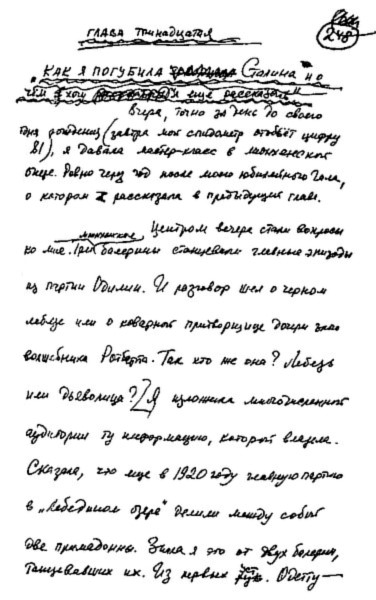 248
ГЛАВА ТРИНАДЦАТАЯ
КАК Я ПОГУБИЛА Сталина и о
чём я ещё рассказала
Вчера, точно за день до своего
дня рождения (завтра мой спидометр отобьёт цифру
81), я давала мастер-класс в мюнхенской
опере. Ровно через год после моего юбилейного Гала,
о котором я рассказала в предыдущих главах.
Центром вечера стали вопросы
ко мне. Три мюнхенские балерины станцевали главные эпизоды
из партии Одиллии. И разговор шёл о чёрном
лебеде или о коварной притворщице дочери злого
волшебника Ротбарта. Так кто же она? Лебедь
или дьяволица? [Я изложила многочисленной
аудитории ту информацию, которой владела.
Сказала, что еще в 1920 году главную партию
в „Лебедином озере" делили между собой
две примадонны. Знала я это от двух балерин,
танцевавших их. Из первых уст. Одетту—